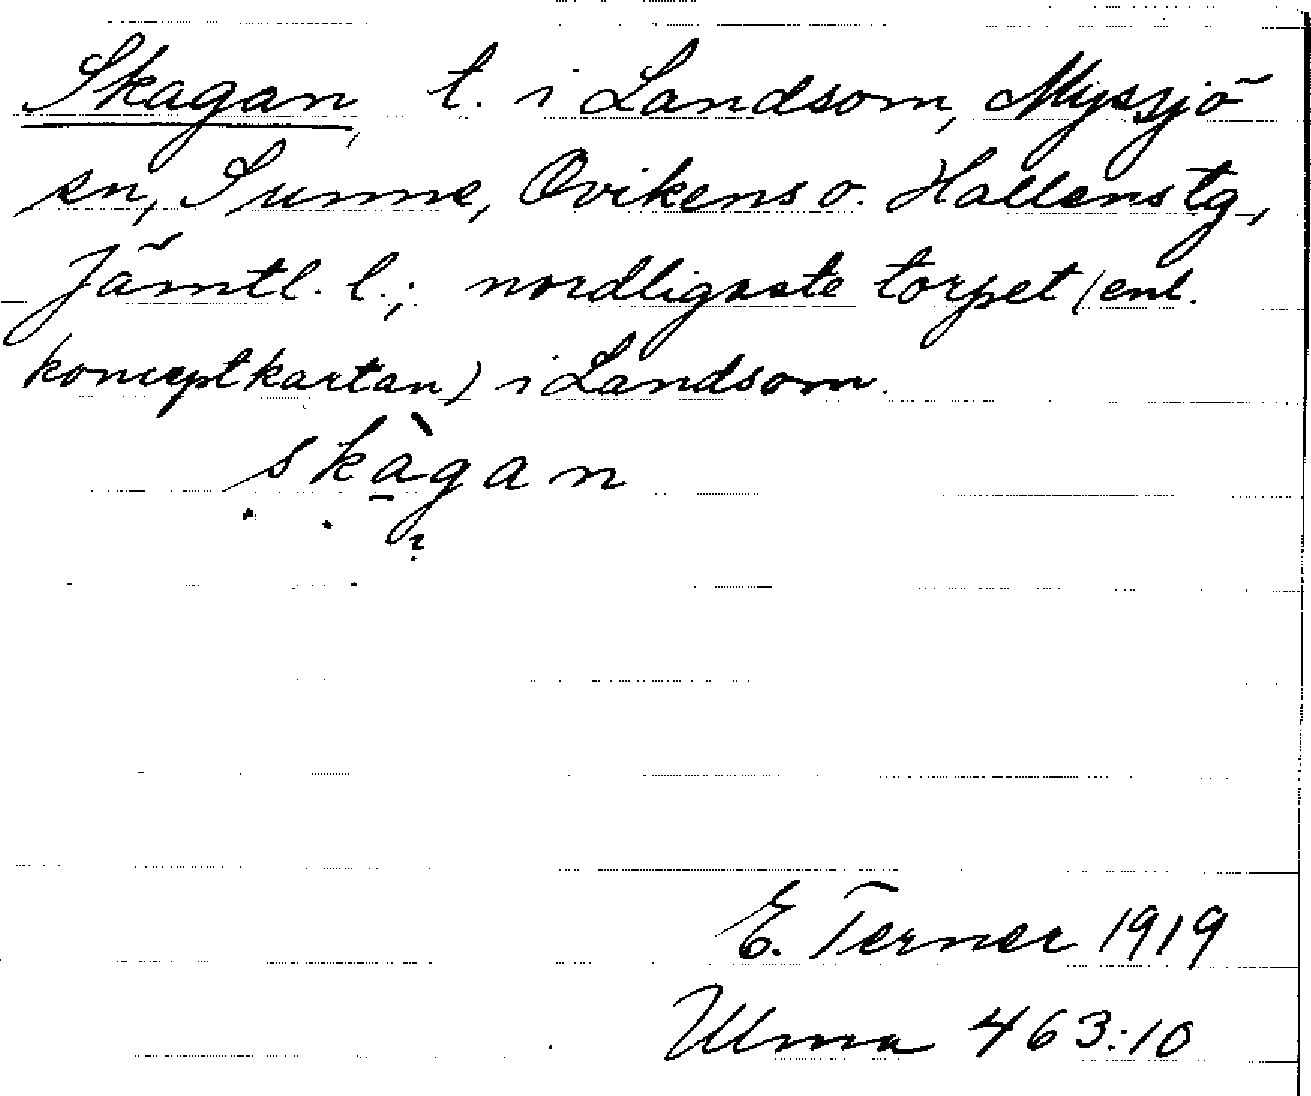 Skagan, t. i Landsom, Myssjö
sn, Sunne, Ovikens o. Hallens tg,
Jämtl. l.; nordligaste torpet (enl.
konceptkartan) i Landsom.
skàgan
E. Terner 1919
Ulma 463:10